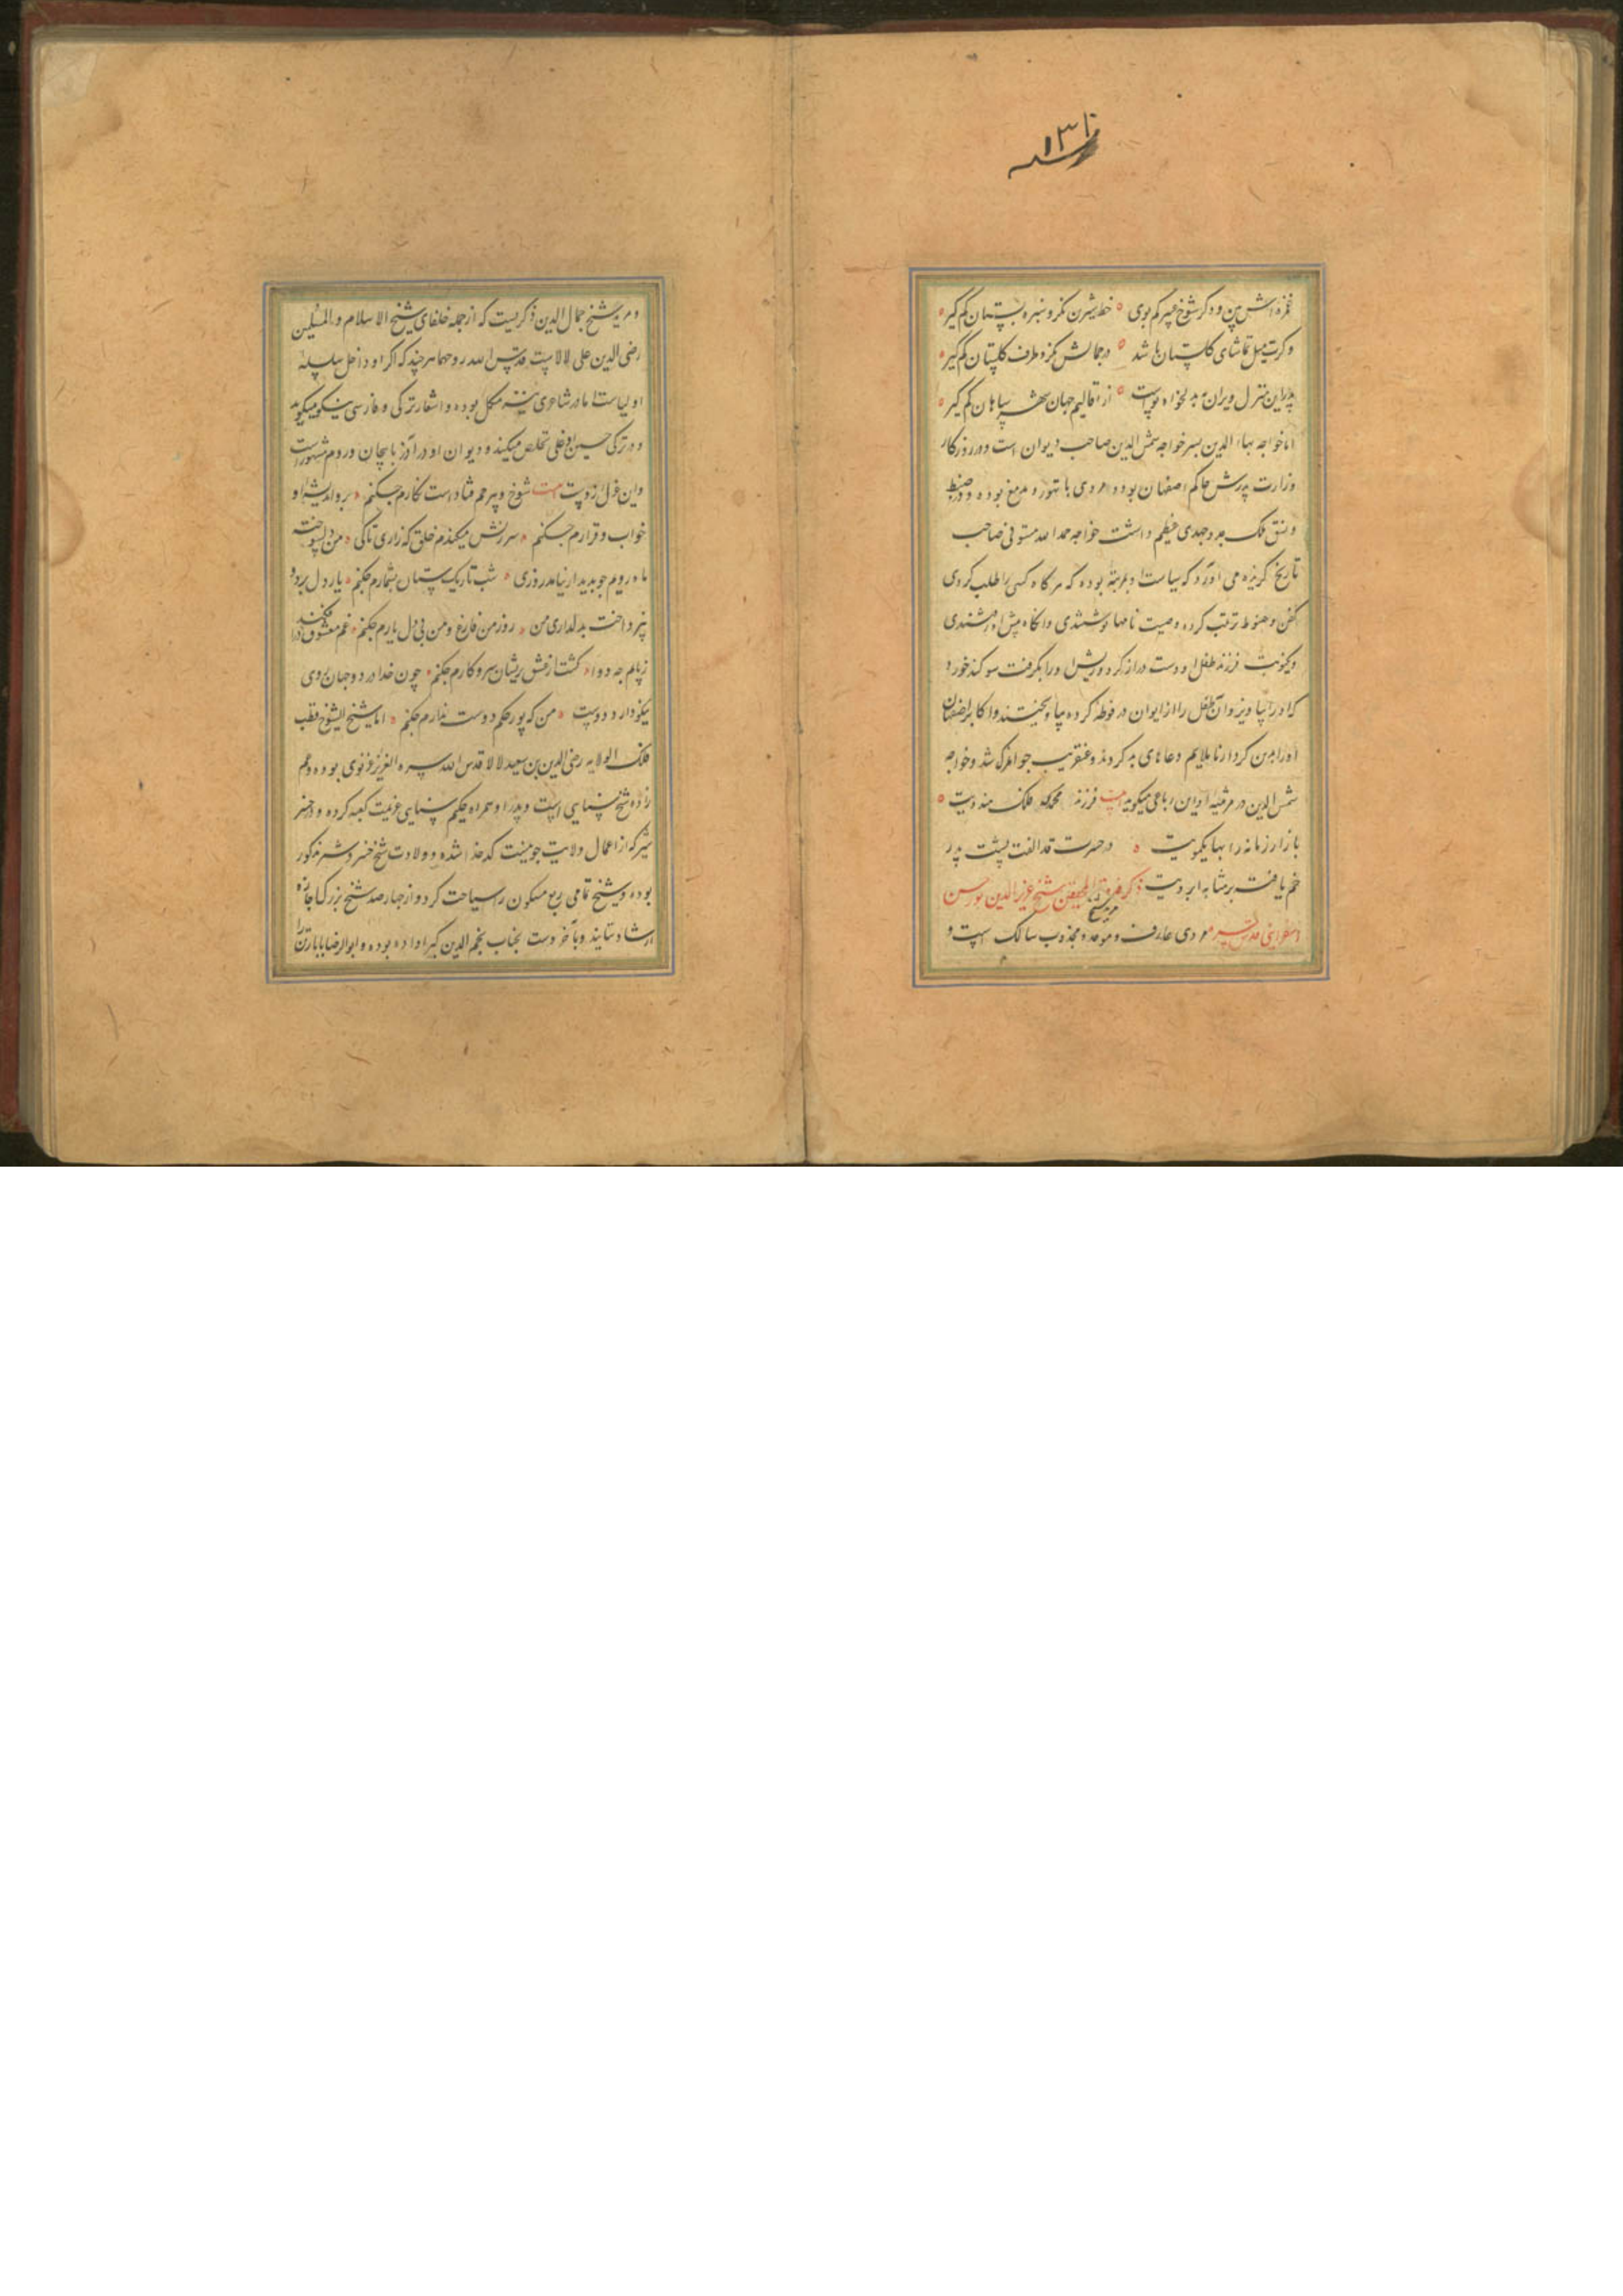 ۱۳۱
غمزه اش بین و دگر شوخ مپر کم بوی خط سبزش نگر و سبزه بستان کم گیر
وگرت میل تماشای گلستان باشد در جمالش نگر و طرف گلستان کم گیر
پدر این منزل ویران نه بدلخواه توست از اقالیم جهان شهر سپاهان کم گیر
اما خواجه بهاء الدین پسر خواجه شمس الدین صاحب دیوان است و در روزگار
وزارت پدرش حاکم اصفهان بود و مردی با تهور و بوده و در ضبط
و نسق ملک جد و جهدی عظیم داشت خواجه حمد الله مستوفی صاحب
تاریخ گزیده می آورد که سیاست او بمرتبه بوده که هر گاه کسی را طلب کردی
کفن و حنوط ترتیب کرده وصیت نامها نوشتندی وانگاه پیش او رفتندی
و یکنوبت فرزند طفل او دست دراز کرد و ریش او را بگرفت سوگند خورد
که او را بیاویزد و آن طفل را از ایوان در فوطه کرده بیاویختند و اکابر اصفهان
او را برین کردار ناملایم دعاهای بد کردند و عنقریب جوانمرگ شد و خواجه
شمس الدین در مرثیه او این رباعی میگوید فرزند محمد ای فلک هندویت
بازار زمانه را بها یکمویت در حسرت قد الفت پشت پدر
خم یافت بر مثابه ابرویت ذکر شیخ عزالدین پور حسن
اسفراینی قدس سره مردی عارف و موحد و مجذوب سالک است و
مرید شیخ
و مرید شیخ جمال الدین ذاکریست که از جمله خلفای شیخ الاسلام والمسلمین
رضی الدین علی لالاست قدس الله روحهما هر چند که اگر او داخل سلسله
اولیاست اما در شاعری نیز مکمل بوده و اشعار ترکی و فارسی نیکو میگوید
و در ترکی حسن اوغلی تخلص میکند و دیوان او در آذربایجان و روم مشهور است
و این غزل از اوست شوخ و بیرحم فتاده است نگارم چکنم برد اندیشه او
خواب و قرارم چکنم سرزنش میکندم خلق که زاری تا کی من دلسوخته
ماه رویم چو بدیدار نیامد روزی شب تاریک ستاره نشمارم چکنم یار دل برد و
نپرداخت بدلداری من روز من فارغ و من بی دل یارم چکنم غم معشوق
چه دوا گشت از عشق پریشان سر و کارم چکنم چون خدا در دو جهان روی
نکو دارد دوست من که پور حسنم دوست ندارم چکنم اما شیخ الشیوخ قطب
فلک الولایه رضی الدین بن سعید لالا قدس الله سره العزیز غزنوی بوده و عم
زاده شیخ سنایی است و پدر او همراه حکیم سنایی عزیمت کعبه کرده و در
که از اعمال ولایت جوینست کدخدا شده و ولادت شیخ مذکور
بوده و شیخ تمامی ربع مسکون را سیاحت کرد و از چهار صد شیخ بزرگ اجازه
ارشاد ستاند و بآخر دست بجناب نجم الدین کبرا داده بوده و ابوالرضا بابا رتن را